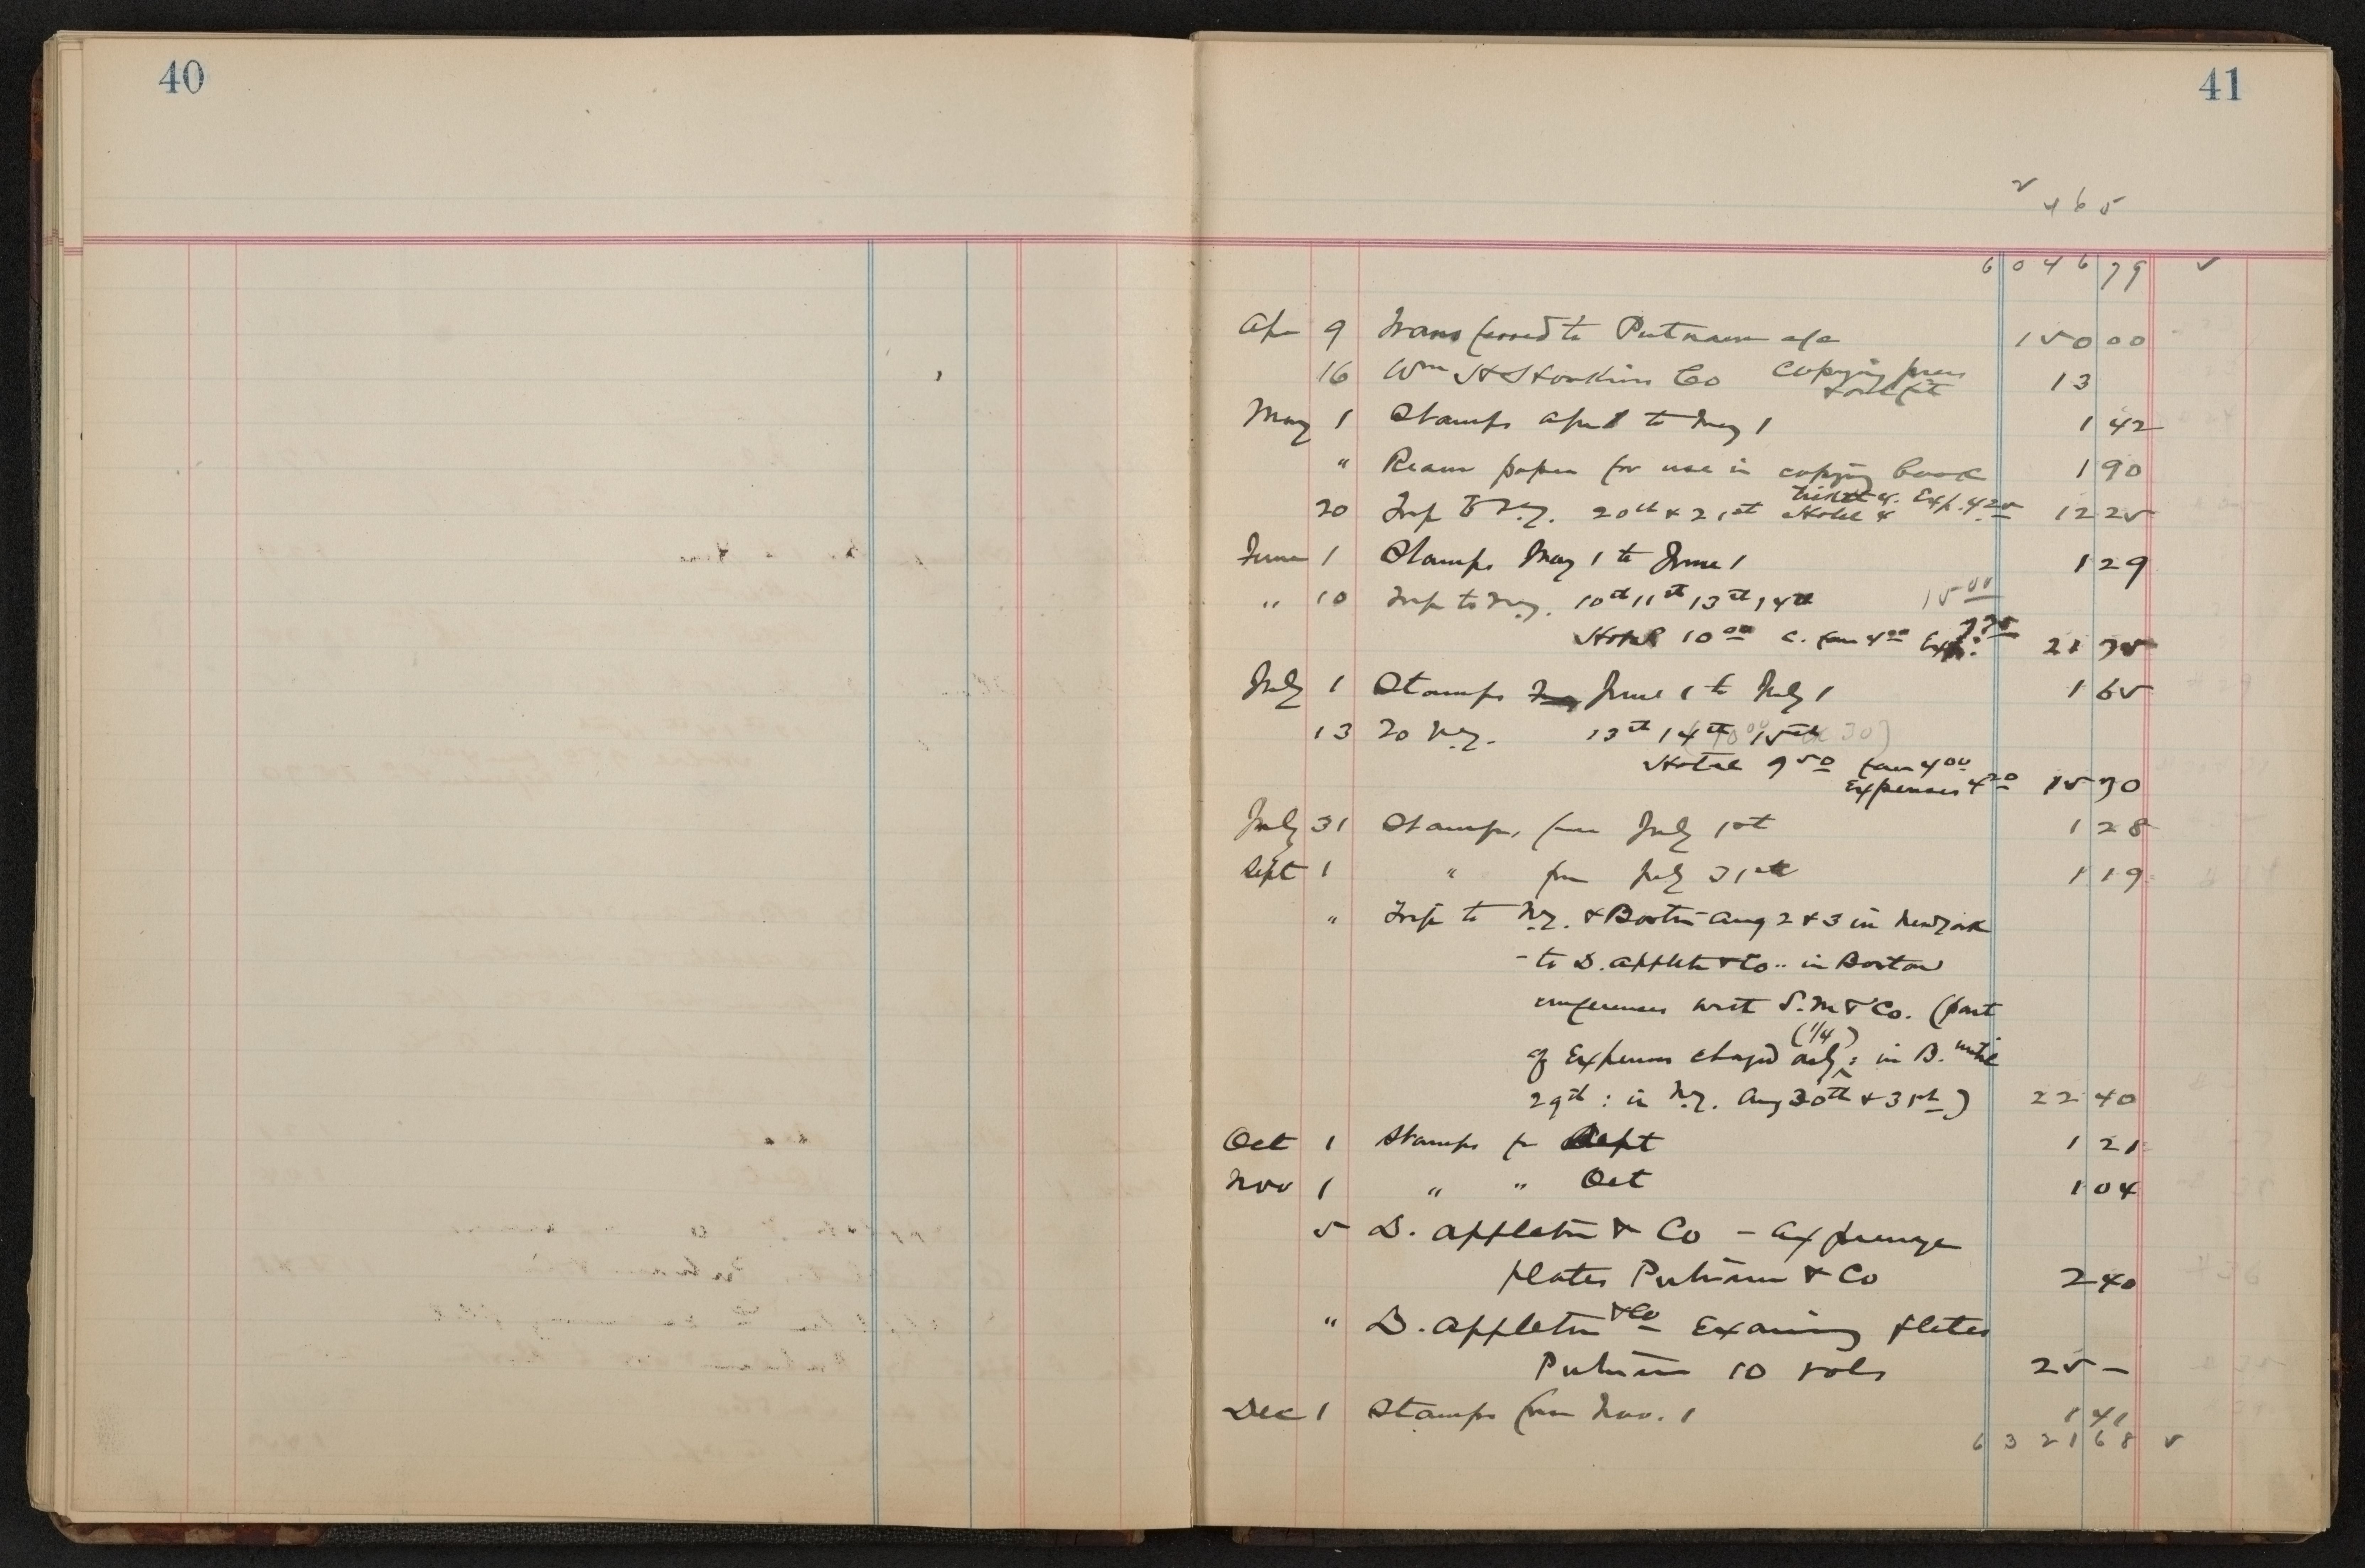 40
41
2
465
6046 79 ✓
Apr 9 Transferred to Putnam a/c 150 00
16 Wm H Hoskins Co Copying press 13
May 1 Stamps April to May 1 1 42
" Ream paper for use in copying book 1 90
Ticket 4. Exp. 4 25
20 Trip to N.Y. 20th & 21st Hotel 4 12 25
June 1 Stamps May 1 to June 1 1 29
" 10 Trip to N.Y. 10th 11th 13th 14th 15 00
Hotel 10 00 C. fare 4 00 Exp. 7 75 21 75
July 1 Stamps June 1 to July 1 1 65
13 To N.Y. 13th 14th 15th
Hotel 7 50 fare 4 00
Expenses 4 20 15 70
July 31 Stamps, from July 1st 1 28
Sept 1 " from July 31st 1 19
" Trip to N.Y. & Boston Aug 2 & 3 in New York
- to D. Appleton & Co. - in Boston
conferences with S. M & Co. (part
(1/4)
of Expenses charged only: in B. until
29th: in N.Y. Aug 30th & 31st) 22 40
Oct 1 Stamps for Sept 1 21
Nov 1 " " Oct 1 04
5 D. Appleton & Co -
plates Putnam & Co 2 40
" D. Appleton & Co Examining plates
Putnam 10 vols 25 —
Dec 1 Stamps from Nov. 1 1 41
6321 68 ✓